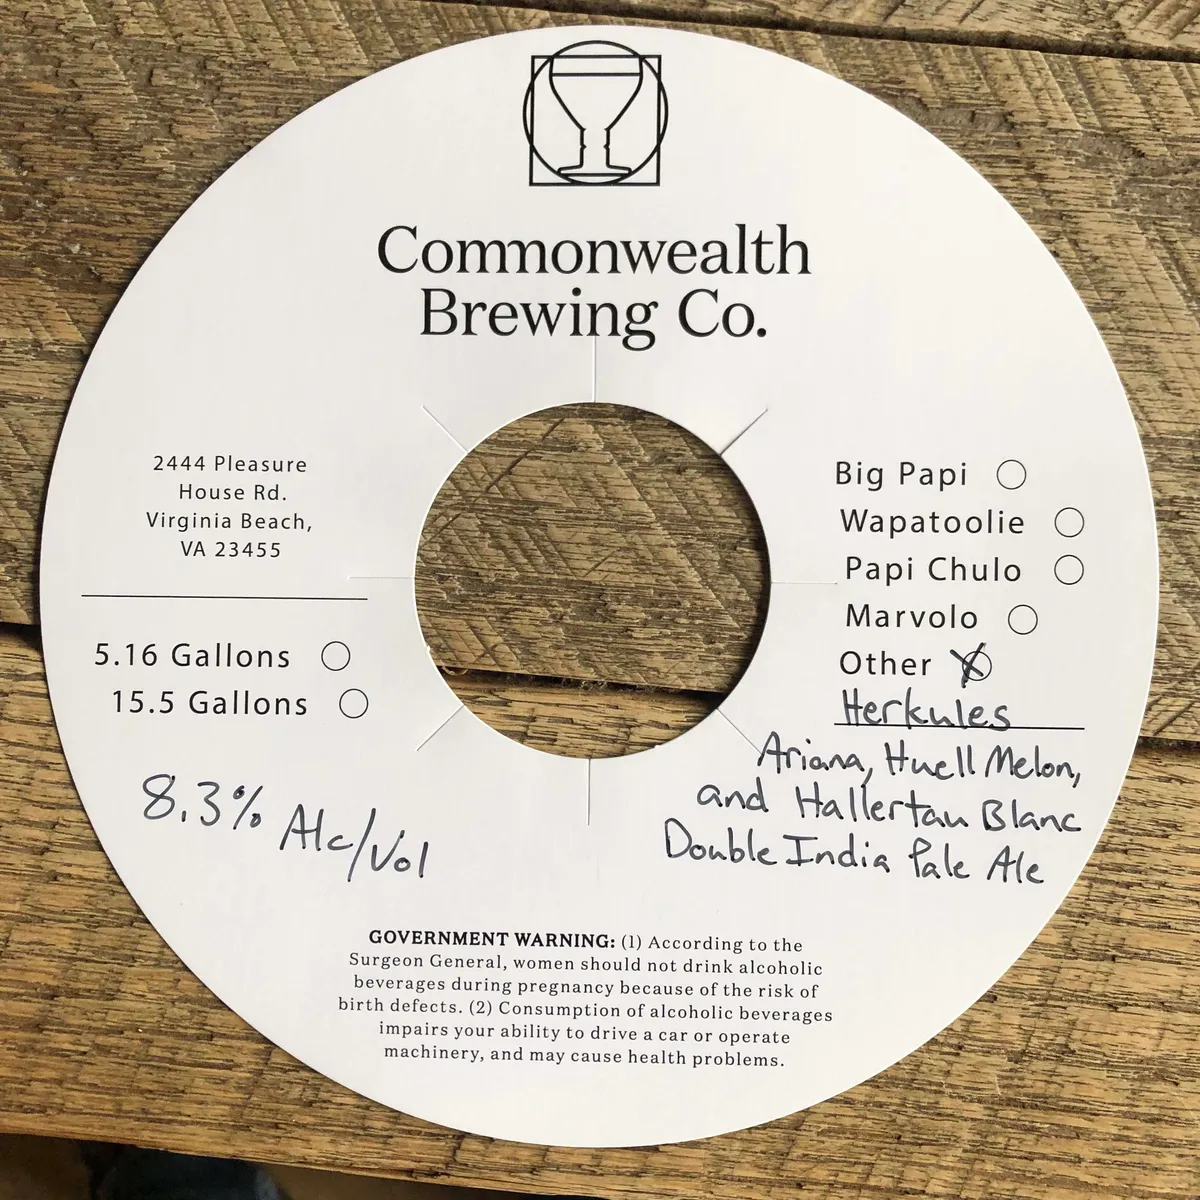 Commonwealth
Brewing Co.
2444 Pleasure
House Rd.
Virginia Beach,
VA 23455
5.16 Gallons
15.5 Gallons
8.3% Alc/Vol
Big Papi
Wapatoolie
Papi Chulo
Marvolo
Other
Herkules
Ariana, Huell Melon,
and Hallertau Blanc
Double India Pale Ale
GOVERNMENT WARNING: (1) According to the
Surgeon General, women should not drink alcoholic
beverages during pregnancy because of the risk of
birth defects. (2) Consumption of alcoholic beverages
impairs your ability to drive a car or operate
machinery, and may cause health problems.